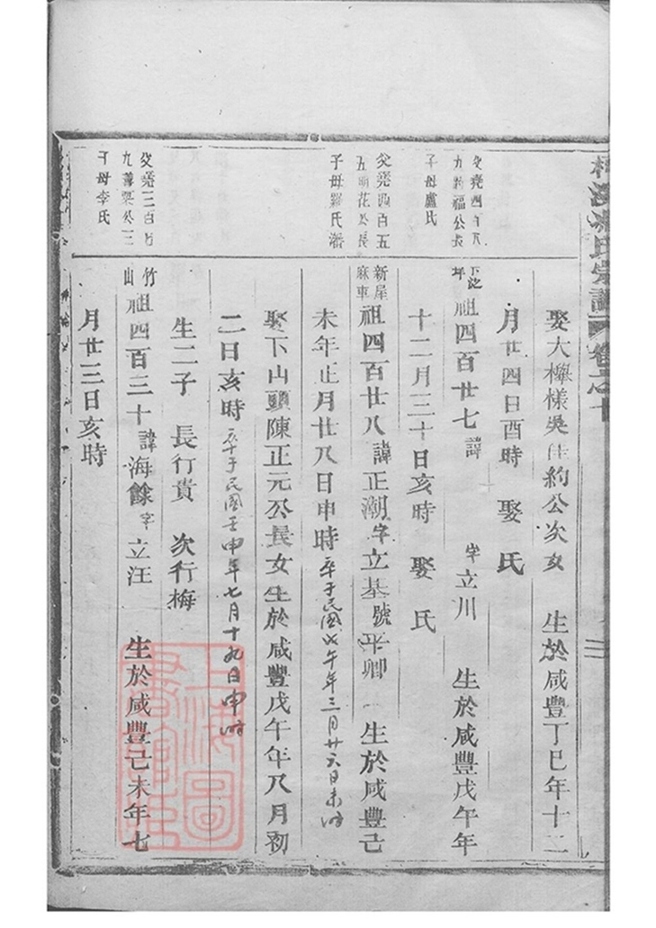 宗譜
娶大樟樣吳佳約公次女 生於咸豐丁巳年十二
月廿四日酉時 娶氏
九 福公長
子母盧氏
祖四百廿七 諱 字立川 生於咸豐戊午年
十二月三十日亥時 娶氏
父堯四百五
五 花公長
子母羅氏潘
新屋
麻車
祖四百廿八 諱正潮 字立基 號平卿 生於咸豐己
未年正月廿八日申時 卒于民國戊午年三月廿六日未時
娶下山頭陳正元公長女生於咸豐戊午年八月初
二日亥時 卒于民國壬申年七月十九日申時
生二子 長行貴 次行梅
父堯三百
九 公三
子母李氏
竹
山
祖四百三十 諱海餘 字立汪 生於咸豐己未年七
月廿三日亥時